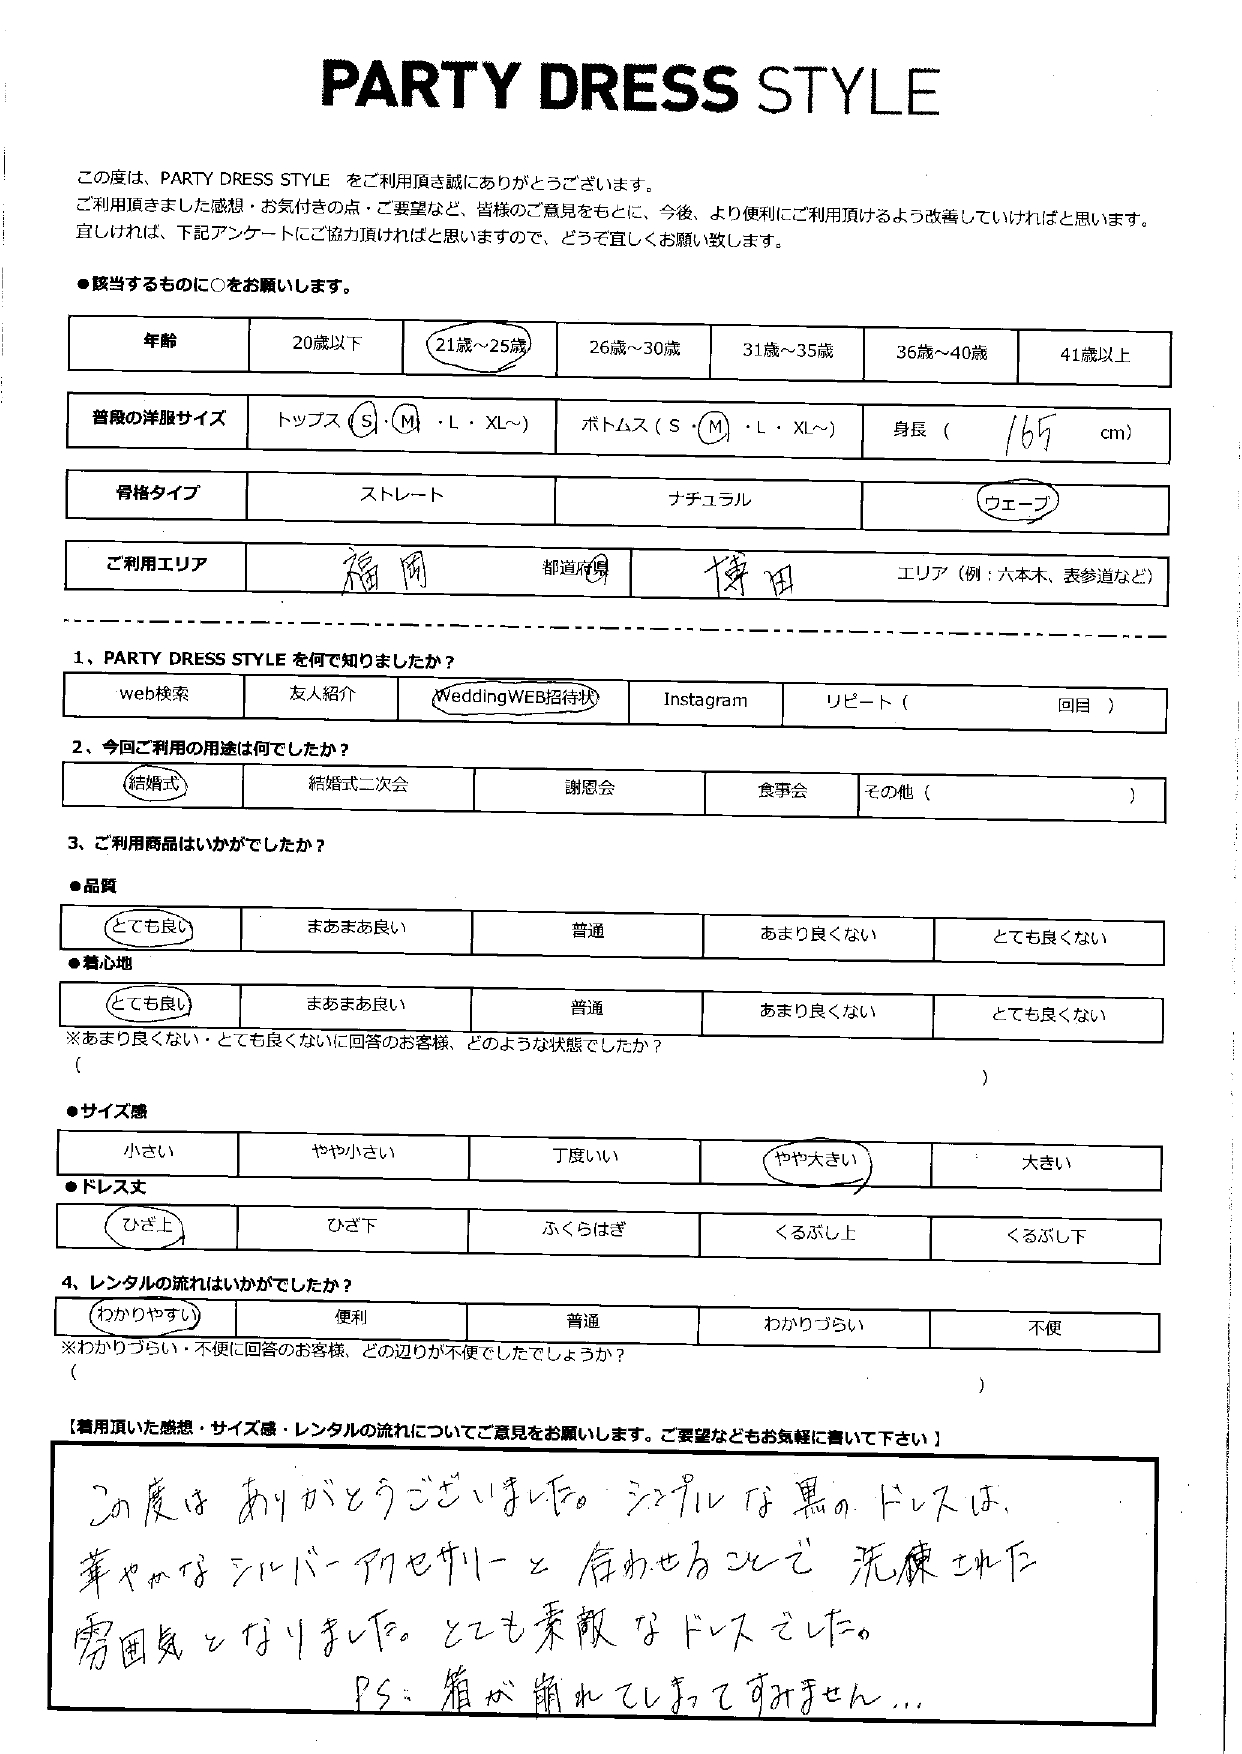 PARTY DRESS STYLE
この度は、PARTY DRESS STYLE をご利用頂き誠にありがとうございます。
ご利用頂きました感想・お気付きの点・ご要望など、皆様のご意見をもとに、今後、より便利にご利用頂けるよう改善していければと思います。
宜しければ、下記アンケートにご協力頂ければと思いますので、どうぞ宜しくお願い致します。
●該当するものに○をお願いします。
年齢 20歳以下 21歳～25歳 26歳～30歳 31歳～35歳 36歳～40歳 41歳以上
普段の洋服サイズ トップス ( S ・ M ・ L ・ XL～) ボトムス ( S ・ M ・ L ・ XL～) 身長 ( 165 cm)
骨格タイプ ストレート ナチュラル ウェーブ
ご利用エリア 福岡 都道府県 博田 エリア（例：六本木、表参道など）
1、PARTY DRESS STYLE を何で知りましたか？
web検索 友人紹介 WeddingWEB招待状 Instagram リピート ( 回目 )
2、今回ご利用の用途は何でしたか？
結婚式 結婚式二次会 謝恩会 食事会 その他 ( )
3、ご利用商品はいかがでしたか？
●品質
とても良い まあまあ良い 普通 あまり良くない とても良くない
●着心地
とても良い まあまあ良い 普通 あまり良くない とても良くない
※あまり良くない・とても良くないに回答のお客様、どのような状態でしたか？
( )
●サイズ感
小さい やや小さい 丁度いい やや大きい 大きい
●ドレス丈
ひざ上 ひざ下 ふくらはぎ くるぶし上 くるぶし下
4、レンタルの流れはいかがでしたか？
わかりやすい 便利 普通 わかりづらい 不便
※わかりづらい・不便に回答のお客様、どの辺りが不便でしたでしょうか？
( )
【着用頂いた感想・サイズ感・レンタルの流れについてご意見をお願いします。ご要望などもお気軽に書いて下さい 】
この度は ありがとうございました。シンプルな黒の ドレスは、
華やかな シルバーアクセサリーと 合わせることで 洗練された
雰囲気となりました。とても素敵なドレスでした。
PS: 箱が崩れてしまってすみません...